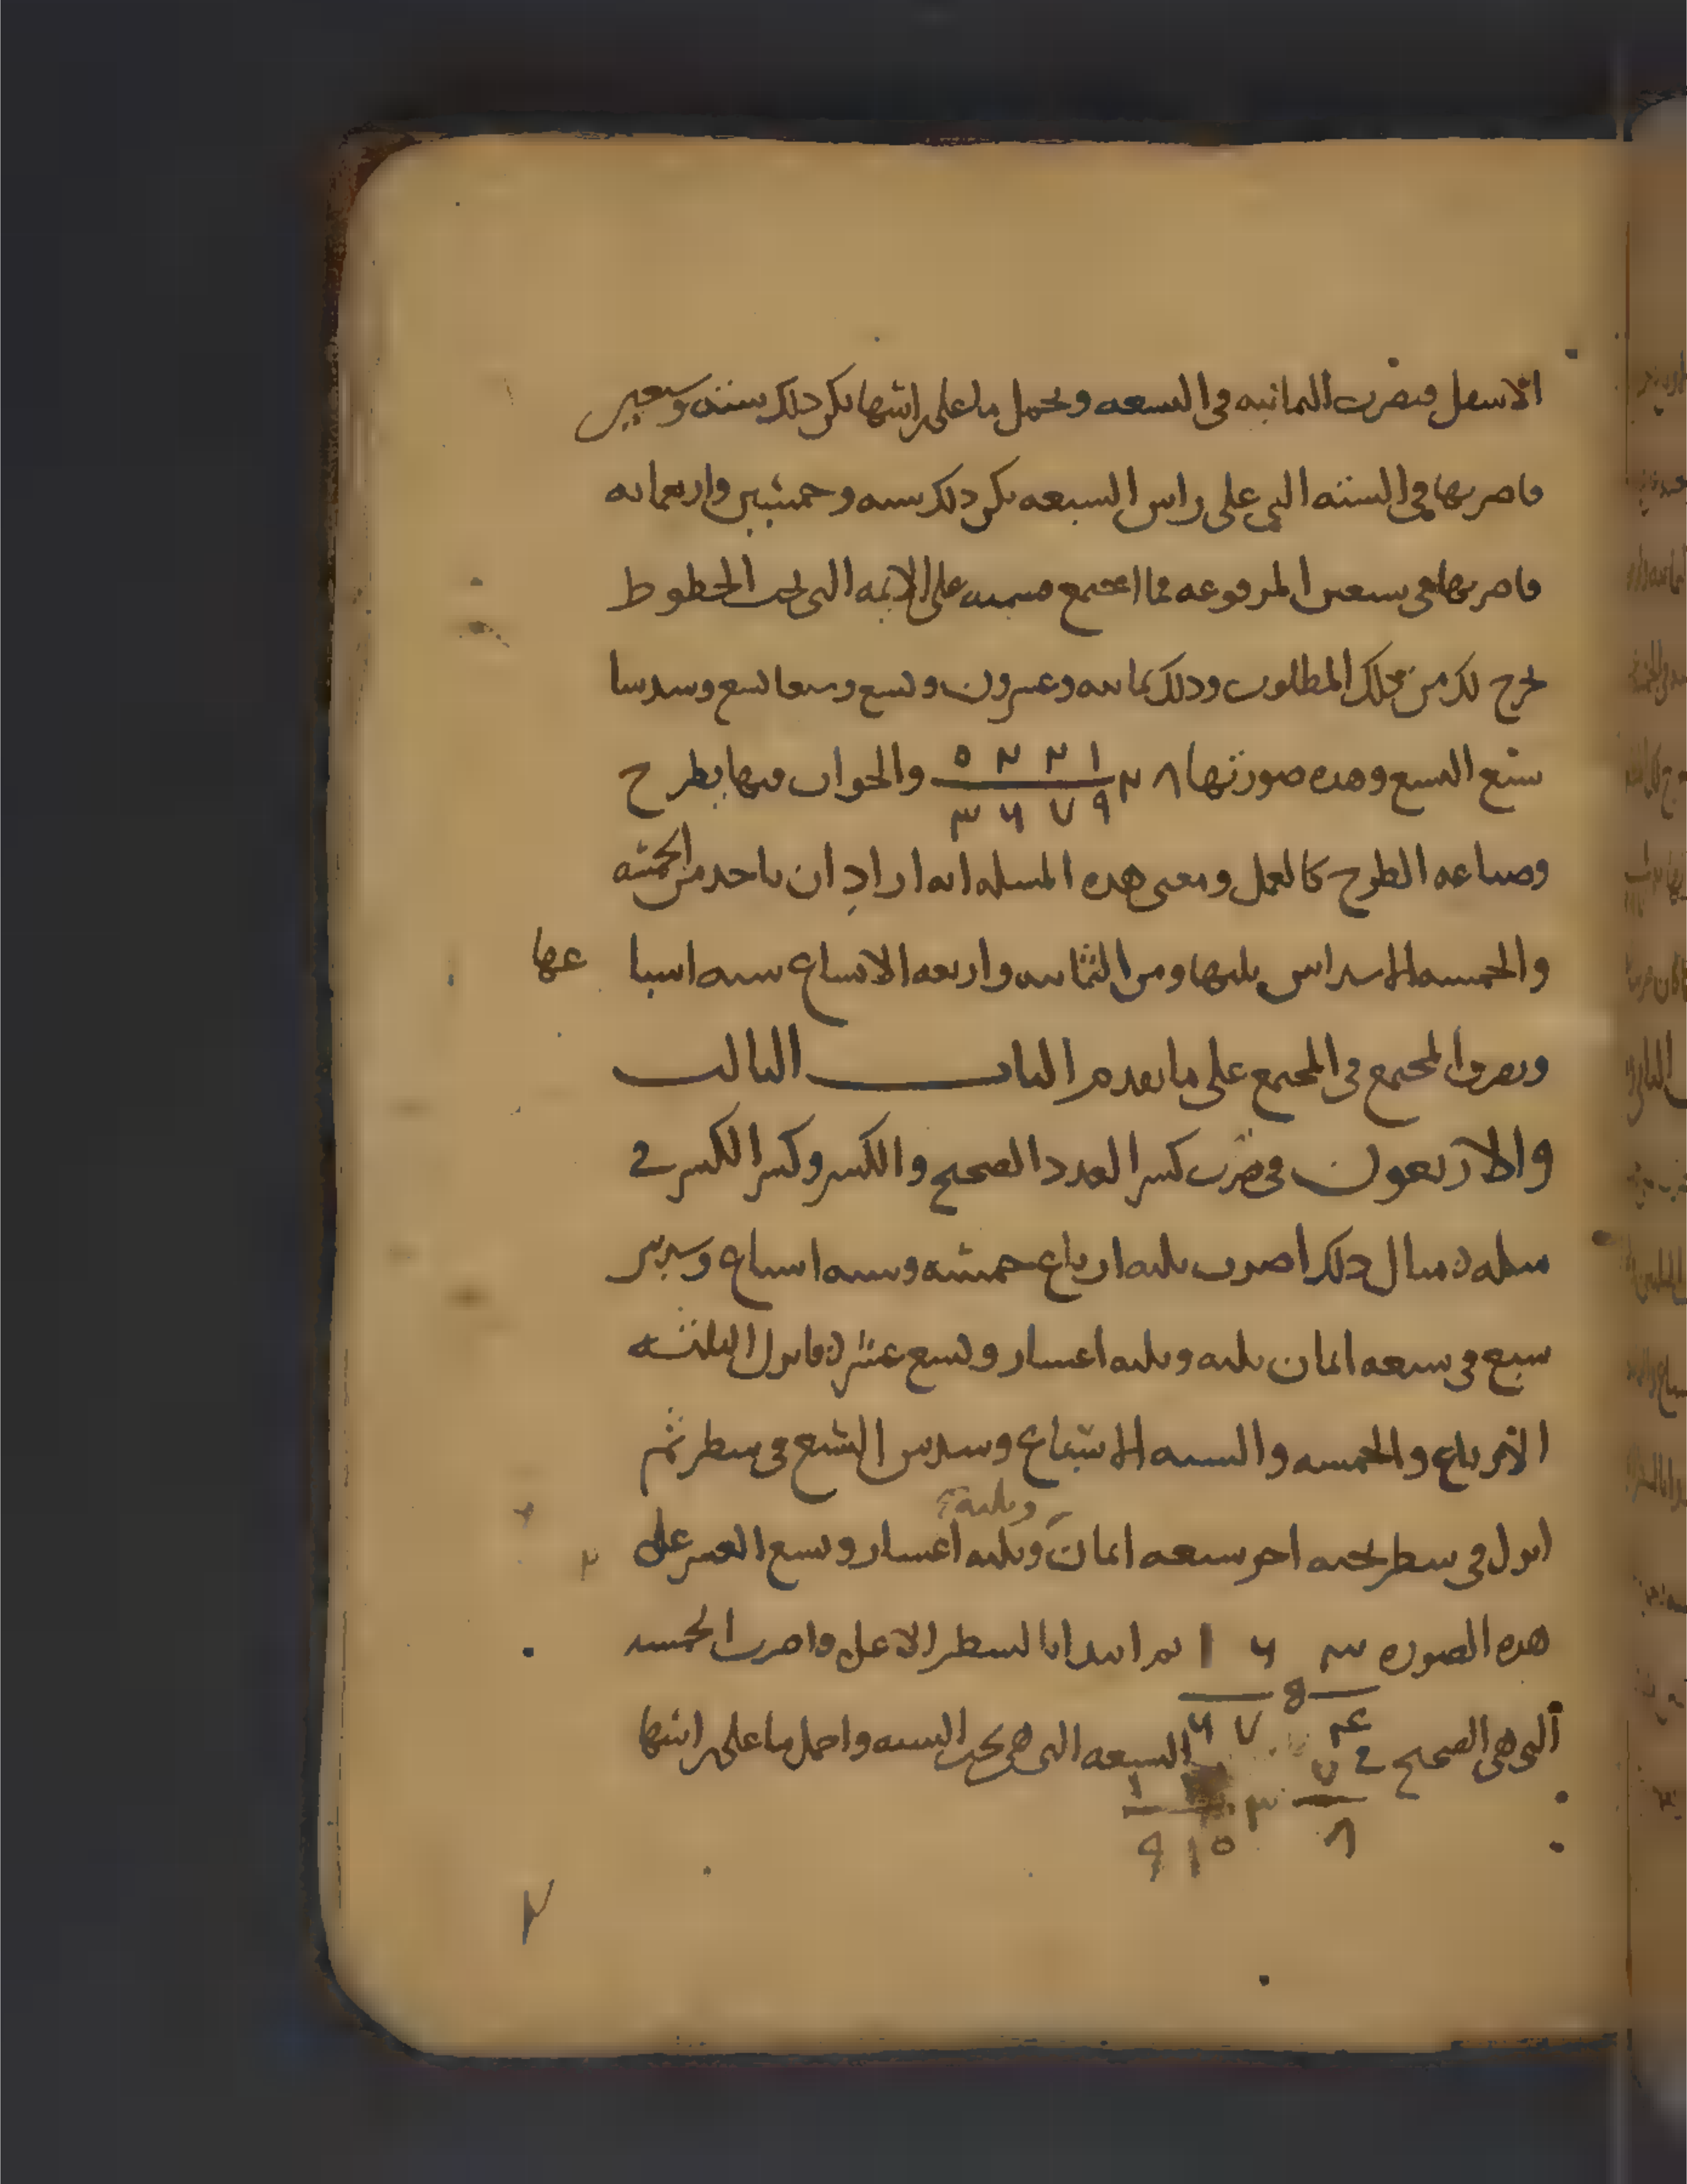 الاسفل فتضرب الثمانيه في التسعه وتحمل ما على راسها يكن ذلك ستة وسبعين
فاضربها في الستة التي على راس السبعه يكن ذلك سته وخمسين واربعمائه
فاضربها في سبعين المرفوعه فما اجتمع قسمته على الائمه التي تحت الخطوط
خرج لك من ذلك المطلوب وذلك ثمانيه وعشرون وتسع وسبعا تسع وسدسا
سبع التسع وهذه صورتها ٢٨ ١ ٢ ٢ ٥ والجواب فيها بطرح
٩ ٧ ٦ ٣
وصناعه الطرح كالعمل ومعنى هذه المسله انه اراد ان ياخذ من الخمسه
والخمسه الاسداس ثلثها ومن الثمانيه واربعه الاتساع سته اسبا عها
ويضرب المجتمع في المجتمع على ما تقدم الباب الثالث
والاربعون في ضرب كسر العدد الصحيح والكسر وكسر الكسر في
مثله مثال ذلك اضرب ثلثه ارباع خمسه وسته اسباع وسدس
سبع في سبعه اثمان ثلثه وثلثه اعشار وتسع عشر فانزل الثلثه
الارباع والخمسه والسته الاسباع وسدس السبع في سطر ثم
وثلثة
انزل في سطر تحته اخر سبعه اثمان وثلثه اعشار وتسع العشر على
هذه الصوره ٣ ٦ ١ ثم ابدا بالسطر الاعلى واضرب الخمسه
٤ ٥ ٧ ٦
التي هي الصحيح في السبعه التي هي تحت السته واحمل ما على راسها
٧ ٣ ١
٨ ١٠ ٩